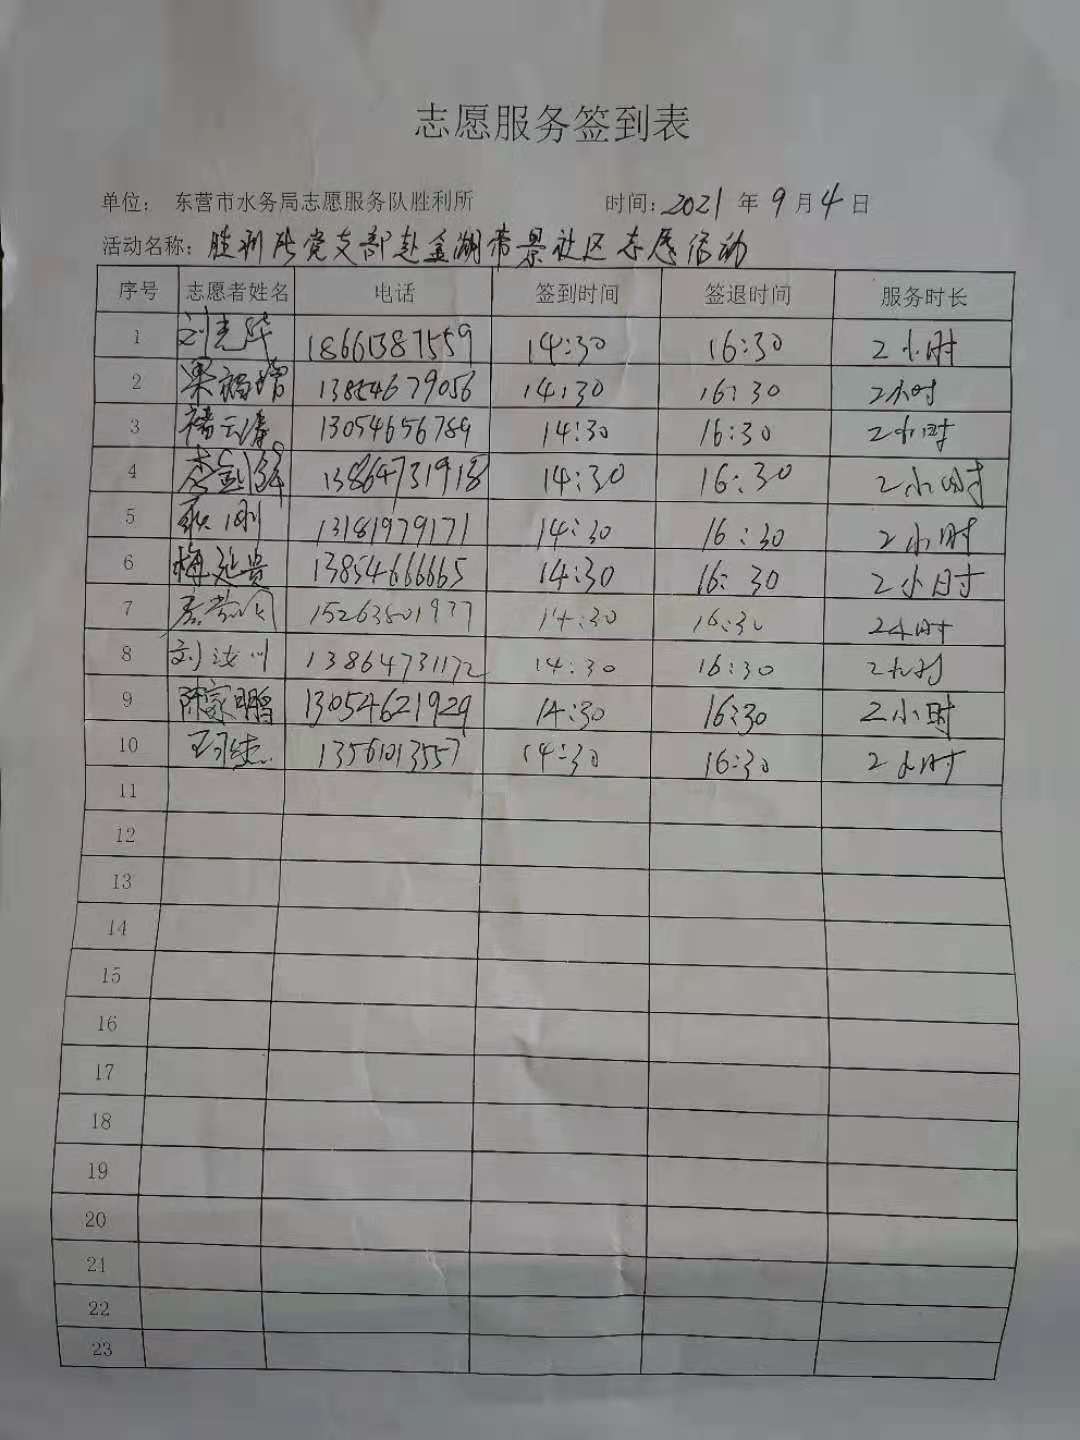 志愿服务签到表
单位： 东营市水务局志愿服务队胜利所 时间：2021 年 9 月 4 日
活动名称：胜利所党支部赴金湖帝景社区志愿活动
序号 志愿者姓名 电话 签到时间 签退时间 服务时长
1 刘光华 18661387559 14:30 16:30 2小时
2 13854679056 14:30 16:30 2小时
3 褚云涛 13054656789 14:30 16:30 2小时
4 李剑锋 13864731918 14:30 16:30 2小时
5 13181979171 14:30 16:30 2小时
6 梅延贵 13854666665 14:30 16:30 2小时
7 15263801977 14:30 16:30 2小时
8 刘汝川 13864731172 14:30 16:30 2小时
9 陈家鹏 13054621929 14:30 16:30 2小时
10 13561013557 14:30 16:30 2小时
11
12
13
14
15
16
17
18
19
20
21
22
23